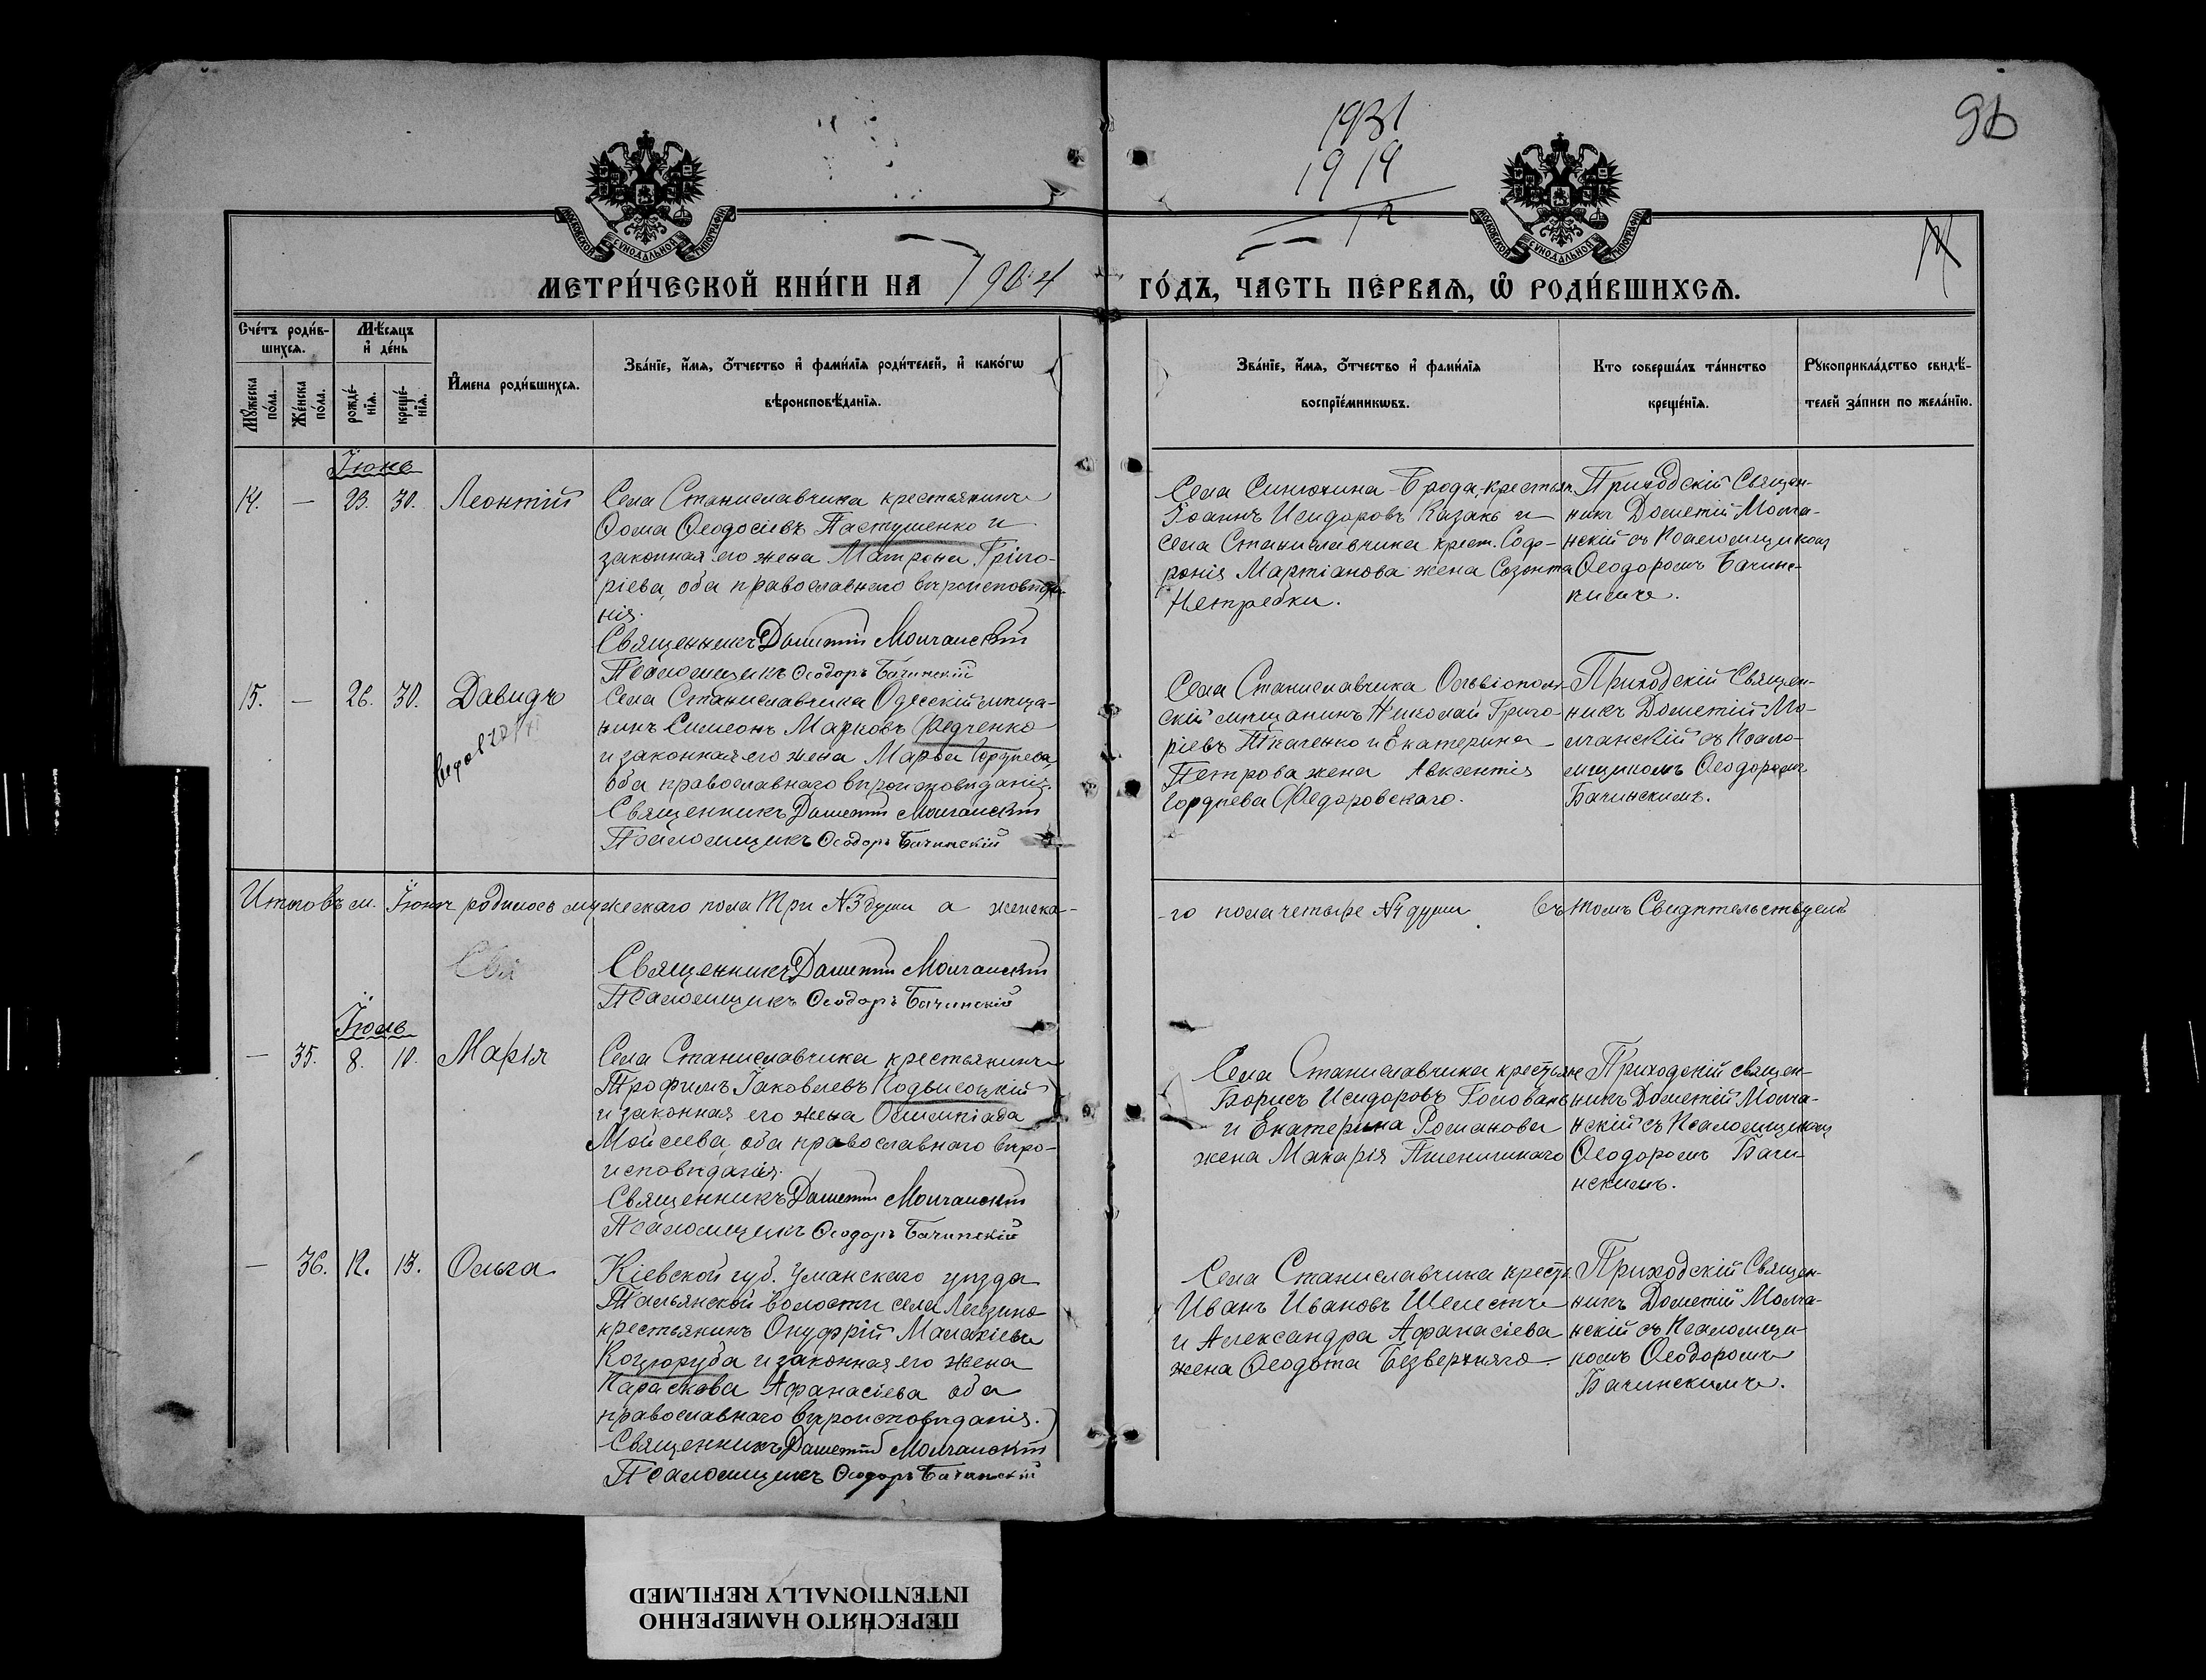 1931
1919
12
96
МОСКОВСКОЙ СУНОДАЛЬНОЙ ТИПОГРАФІИ
МОСКОВСКОЙ СУНОДАЛЬНОЙ ТИПОГРАФІИ
МЕТРИ́ЧЕСКОЙ КНИ́ГИ НА 1904 ГО́ДЪ, ЧАСТЬ ПЕ́РВАѦ, Ѽ РОДИ́ВШИХСѦ.
Сче́тъ роди́в-
шихсѧ.
Мѣ́сѧцъ
и҆ де́нь
Мꙋ́жеска
по́ла.
Же́нска
по́ла.
рожде́-
нїѧ.
креще́-
нїѧ.
И҆́мена роди́вшихсѧ.
Зва́нїе, и҆́мѧ, ѻ҆́тчество и҆ фами́лїѧ роди́телей, и҆ како́гѡ
вѣроисповѣ́данїѧ.
Зва́нїе, и҆́мѧ, ѻ҆́тчество и҆ фами́лїѧ
воспрїе́мникѡвъ.
Кто соверша́лъ та́инство
креще́нїѧ.
Рꙋкоприкла́дство свидѣ́-
телей за́писи по жела́нїю.
Іюнь
14. — 23. 30. Леонтій
Села Станиславчика крестьянинъ
Ѳома Ѳеодосіевъ Пастушенко и
законная его жена Матрона Григо-
ріева, оба православнаго вѣроисповѣда-
нія.
Священникъ Дометій Молчанскій
Псаломщикъ Ѳеодоръ Бачинскій
Села Синюхина-Брода, крестьян.
Іоаннъ Исидоровъ Казакъ и
села Станиславчика крест. Соф-
ронія Мартіанова жена Созонта
Нетребки.
Приходскій Священ-
никъ Дометій Молча-
нскій съ Псаломщикомъ
Ѳеодоромъ Бачинс-
кимъ.
15. — 26. 30. Давидъ
Села Станиславчика Одесскій мѣща-
нинъ Симеонъ Марковъ Федченко
и законная его жена Марѳа Гордѣева,
оба православнаго вѣроисповѣданія.
Священникъ Дометій Молчанскій
Псаломщикъ Ѳеодоръ Бачинскій
Села Станиславчика Ольвіополь-
скій мѣщанинъ Николай Григо-
ріевъ Ткаченко и Екатерина
Петрова жена Авксентія
Гордѣева Федоровскаго.
Приходскій Священ-
никъ Дометій Мо-
лчанскій съ Псало-
мщикомъ Ѳеодоромъ
Бачинскимъ.
Итого въ м. Іюнѣ родилось мужескаго пола три №3 души а женска-
-го пола четыре №4 души. Въ томъ Свидѣтельствуемъ
Свя
Священникъ Дометій Молчанскій
Псаломщикъ Ѳеодоръ Бачинскій
Іюль
— 35. 8. 10. Марія
Села Станиславчика крестьянинъ
Трофимъ Іаковлевъ Подвысоцкій
и законная его жена Олимпіада
Мойсеева, оба православнаго вѣро-
исповѣданія.
Священникъ Дометій Молчанскій
Псаломщикъ Ѳеодоръ Бачинскій
Села Станиславчика крестьяне
Борисъ Исидоровъ Головань
и Екатерина Романова
жена Макарія Пшеничнаго
Приходскій священ-
никъ Дометій Молча-
нскій съ Псаломщикомъ
Ѳеодоромъ Бачи-
нскимъ.
— 36. 12. 13. Ольга
Кіевской губ. Уманскаго уѣзда
Тальянской волости села Легзино
крестьянинъ Онуфрій Малахіевъ
Коцюруба и законная его жена
Параскева Афанасіева оба
православнаго вѣроисповѣданія.
Священникъ Дометій Молчанскій
Псаломщикъ Ѳеодоръ Бачинскій
Села Станиславчика крестьян.
Иванъ Ивановъ Шелестъ
и Александра Афанасіева
жена Ѳеодота Безверхняго.
Приходскій Священ-
никъ Дометій Молча-
нскій съ Псаломщи-
комъ Ѳеодоромъ
Бачинскимъ.
ПЕРЕСНЯТО НАМЕРЕННО
INTENTIONALLY REFILMED